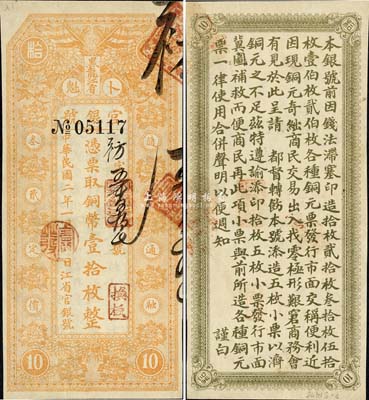 黑龍江省
卜魁
№ 05117
憑票取銅幣壹拾枚整
中華民國二年
江省官銀號
換訖
通
融
10
10
本銀號前因錢法滯塞印造拾枚貳拾枚叁拾枚伍拾
枚壹伯枚貳伯枚各種銅元票發行市面交稱便利近
因現銅元奇絀商民交易出入找零極形艱窘商務會
有見於此呈請 都督轉飭本號添造五枚小票以濟
銅元之不足茲特遵諭添印拾枚五枚小票發行市面
冀圖補救而便商民再此項小票與前所造各種銅元
票一律使用合併聲明以便週知
謹白
10
10
10
10